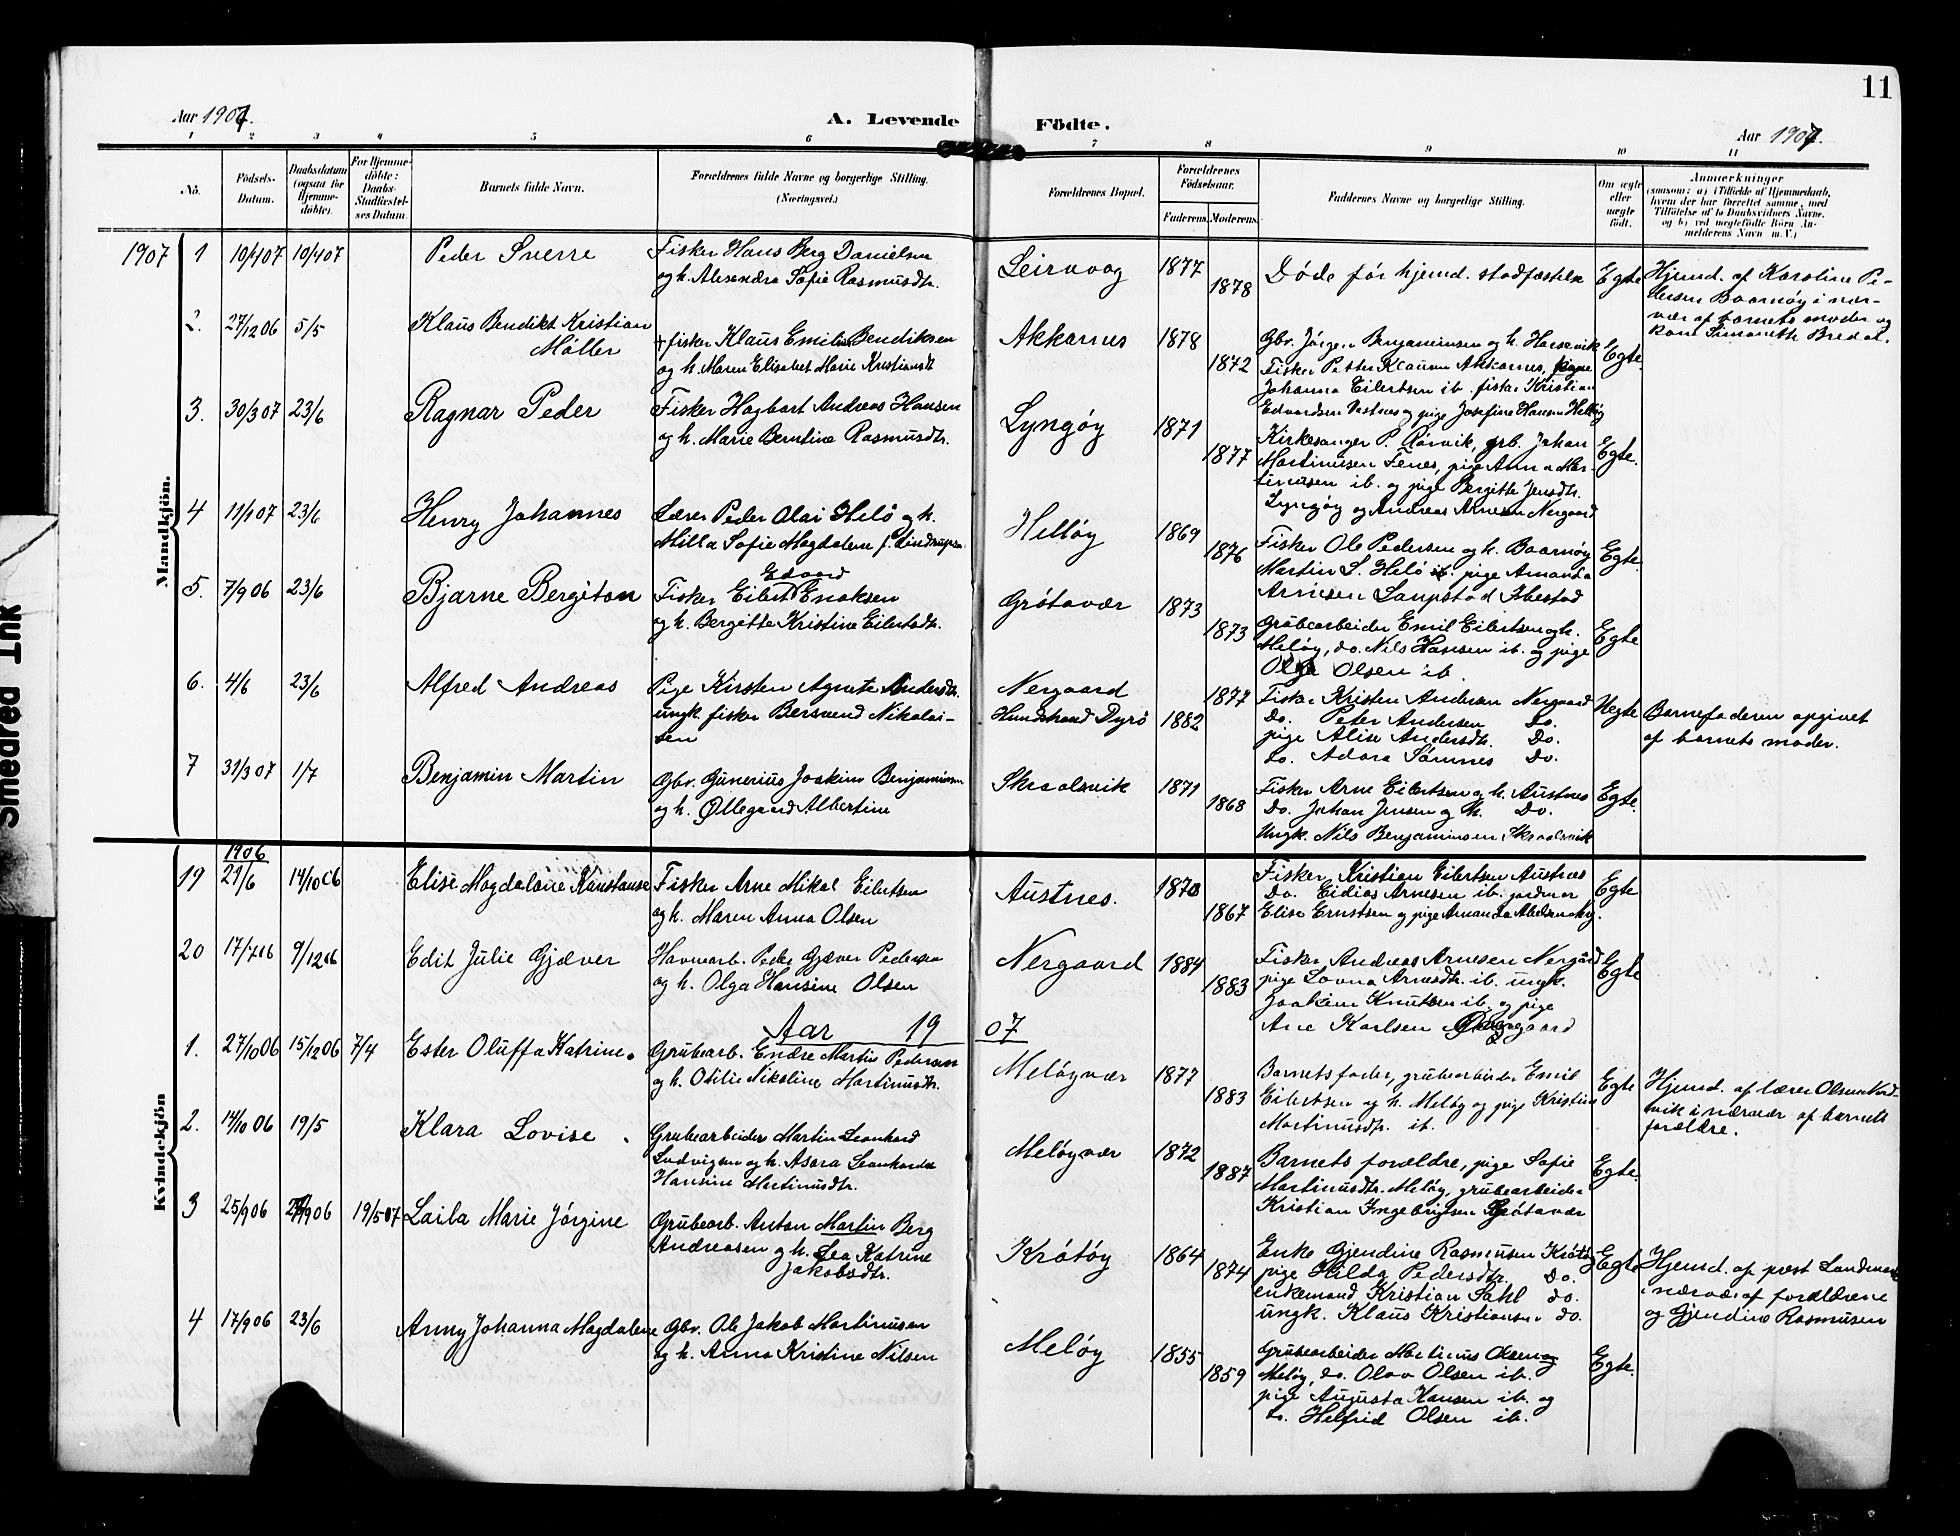 11
Aar 1907.
A. Levende
Födte.
Aar 1907.
1 2 3 4 5 6 7 8 9 10 11
No.
Födsels-
Datum.
Daabsdatum
(ogsaa for
Hjemme-
döbte).
For Hjemme-
döbte:
Daabs-
Stadfæstel-
ses Datum.
Barnets fulde Navn.
Forældrenes fulde Navne og borgerlige Stilling.
(Næringsvei.)
Forældrenes Bopæl.
Forældrenes
Födselsaar.
Faderens. Moderens.
Faddernes Navne og borgerlige Stilling.
Om ægte
eller
uægte
født.
Anmærkninger
(saasom: a) i Tilfælde af Hjemmedaab,
hvem der har forrettet samme, med
Tilföielse af to Daabsvidners Navne.
og b) ved uægtefödte Börn An-
melderens Navn m. V.)
Mandkjön.
1907 1 10/4 07 10/4 07 Peder Sverre
Fisker Hans Berg Danielsen
og h. Alexandra Sofie Rasmusdtr.
Leirvaag 1877 1878
Døde før hjemd. stadfæstelse
Egte
Hjemd. af Karoline Pe-
dersen Baarnøy i nær-
vær af barnets moder og
kone Simoneth Bredal.
2. 27/12 06 5/5 Klaus Bendikt Kristian
Møller
+ fisker Klaus Emil Bendiksen
og h. Maren Elisabet Marie Kristiansdt
Akkarnes 1878 1872
Gbr. Jørgen Benjaminsen og h.
Fisker Peter Klausen Akkarnes, pige
Johanna Eilertsen ib. fisker Kristian
Edvardsen Vestnes og pige Josefine Hansen
Egte
3. 30/3 07 23/6 Ragnar Peder
Fisker Hagbart Andreas Hansen
og h. Marie Berntine Rasmusdtr.
Lyngøy 1871 1877
Kirkesanger P. Rørvik, grb. Johan
Martinussen Fenes, pige Anna Mar-
tinusen ib. og pige Bergitte Jensdtr.
Lyngøy og Andreas Arnesen Nergaard
Egte.
4 11/1 07 23/6 Henry Johannes
Lærer Peder Olai Helø og h.
Milla Sofie Magdalene f. Lindrupsen
Helløy 1869 1876
Fisker Ole Pedersen og h. Baarnøy
Martin S. Helø ib. pige Amanda
Arnesen Laupstad Ibestad
Egte.
5. 7/9 06 23/6 Bjarne Bergiton
Edvard
Fisker Eilert Enoksen
og h. Bergitte Kristine Eilertsdtr.
Grøtavær 1873 1873
Grubearbeider Emil Eilertsen og h.
Meløy, do. Nils Hansen ib. og pige
Olga Olsen ib.
Egte
6. 4/6 23/6 Alfred Andreas
Pige Kirsten Agnete Andersdtr.
ungk. fisker Bersvend Nikolai-
sen
Nergaard
Hundstrand Dyrø 1877 1882
Fisker Kristen Andersen Nergaard
Do. Peter Andersen Do.
pige Alise Andersdtr. Do.
do. Adora Sømnes Do.
Uegte
Barnefaderen opgivet
af barnets moder.
7 31/3 07 1/7 Benjamin Martin
Gbr. Gunerius Joakim Benjaminsen
og h. Øllegaard Albertine
Skraalsvik 1871 1868
Fisker Arne Eilertsen og h. Austnes
Do. Johan Jensen og h. Do.
Ungk. Nils Benjaminsen Skraalsvik
Egte.
Kvindekjön
1906
19 21/6 14/10 06 Elise Magdalene Konstanse
Fisker Arne Mikal Eilertsen
og h. Maren Anna Olsen
Austnes. 1870 1867
Fisker Kristian Eilertsen Austnes
Do. Eidias Arnesen ib. jordmor
Elise Ernstsen og pige Amanda
Egte.
20 17/7 06 9/12 06 Edit Julie Gjæver
Havnearb. Peder Gjæver Pedersen
og h. Olga Hansine Olsen
Nergaard 1884 1883
Fisker Andreas Arnesen Nergård
pige Lovna Arnesdtr. ib. ungk.
Joakim Knutsen ib. og pige
Ane Karlsen
Egte.
Aar 1907
1. 27/10 06 15/12 06 7/4 Ester Oluffa Katrine.
Grubearb. Endre Martin Pedersen
og h. Otilie Nikoline Martinusdtr.
Meløyvær 1877 1883
Barnets fader, grubearbeider Emil
Eilertsen og h. Meløy og pige Kristine
Martinusdtr. ib.
Egte
Hjemd. af lærer Olsen Nord-
vik i nærvær af barnets
forældre.
2. 14/10 06 19/5 Klara Lovise.
Grubearbeider Martin Leonhard
Ludvigsen og h. Asora Leonharda
Hansine Martinusdtr.
Meløyvær 1872 1887
Barnets forældre, pige Sofie
Martinusdtr. Meløy, grubearbeider
Kristian Ingebrigtsen Grøtavær
Egte.
3 25/9 06 06 19/5 07 Laila Marie Jørgine
Grubearb. Anton Martin Berg
Andreasen og h. Lea Katrine
Jakobsdtr.
Krøtøy 1864 1874
Enke Gjendine Rasmusen Krøtøy
pige Hilda Pedersdtr. Do.
enkemand Kristian Dahl do.
ungk. Klaus Kristiansen do.
Egte
Hjemd. af præst Landmark
i nærvær af forældrene
og Gjendine Rasmusen
4 17/9 06 23/6 Anny Johanna Magdalene
Gbr. Ole Jakob Martinusen
og h. Anna Kristine Nilsen
Meløy 1855 1859
Grubearbeider Martinus Olsen og
Meløy, do. Olav Olsen ib.
pige Augusta Hansen ib. og
do. Helfrid Olsen ib.
Egte.
Smeared Ink